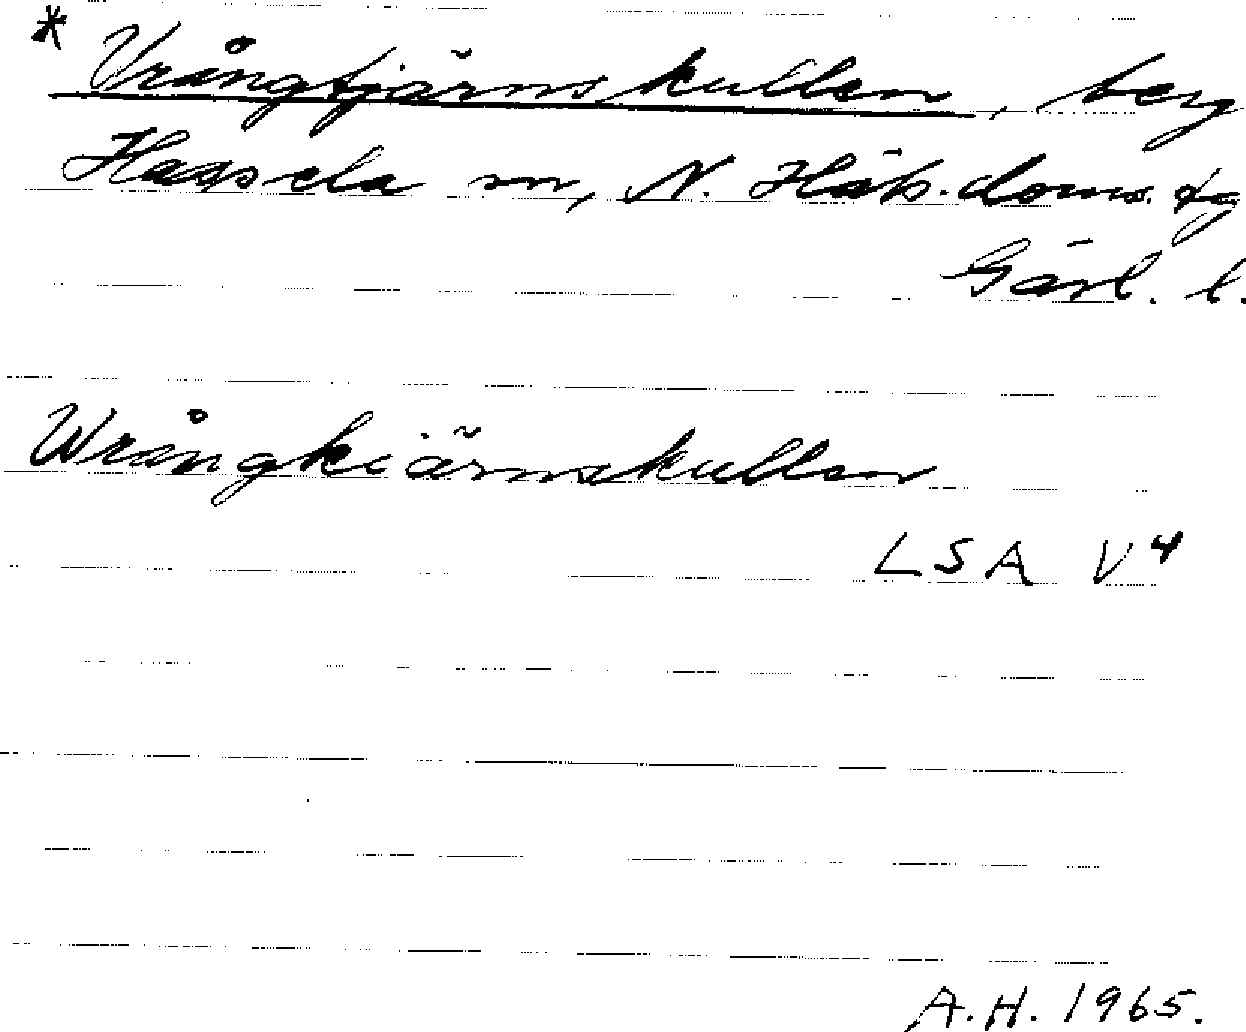 * Vrångtjärnskullen, berg
Hassela sn, N. Häls. doms. tg
Gävl. l.
Wrångkiärnskullen
LSA V4
A.H. 1965.